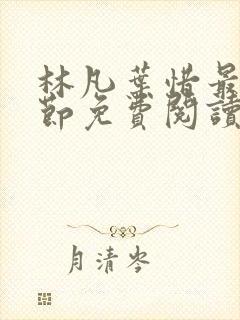 林凡葉惜最
節免費閱讀
月清岑